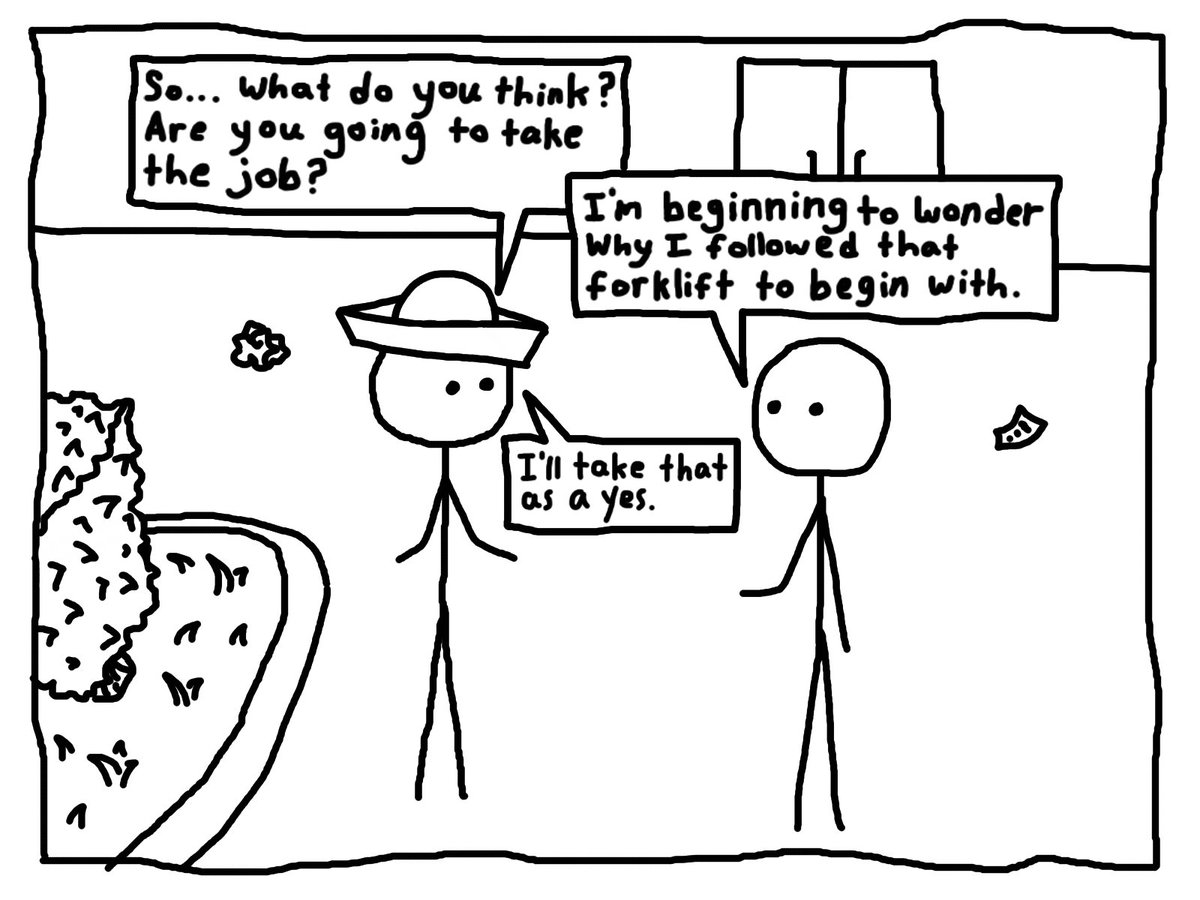 So... What do you think?
Are you going to take
the job?
I'm beginning to wonder
Why I followed that
forklift to begin with.
I'll take that
as a yes.